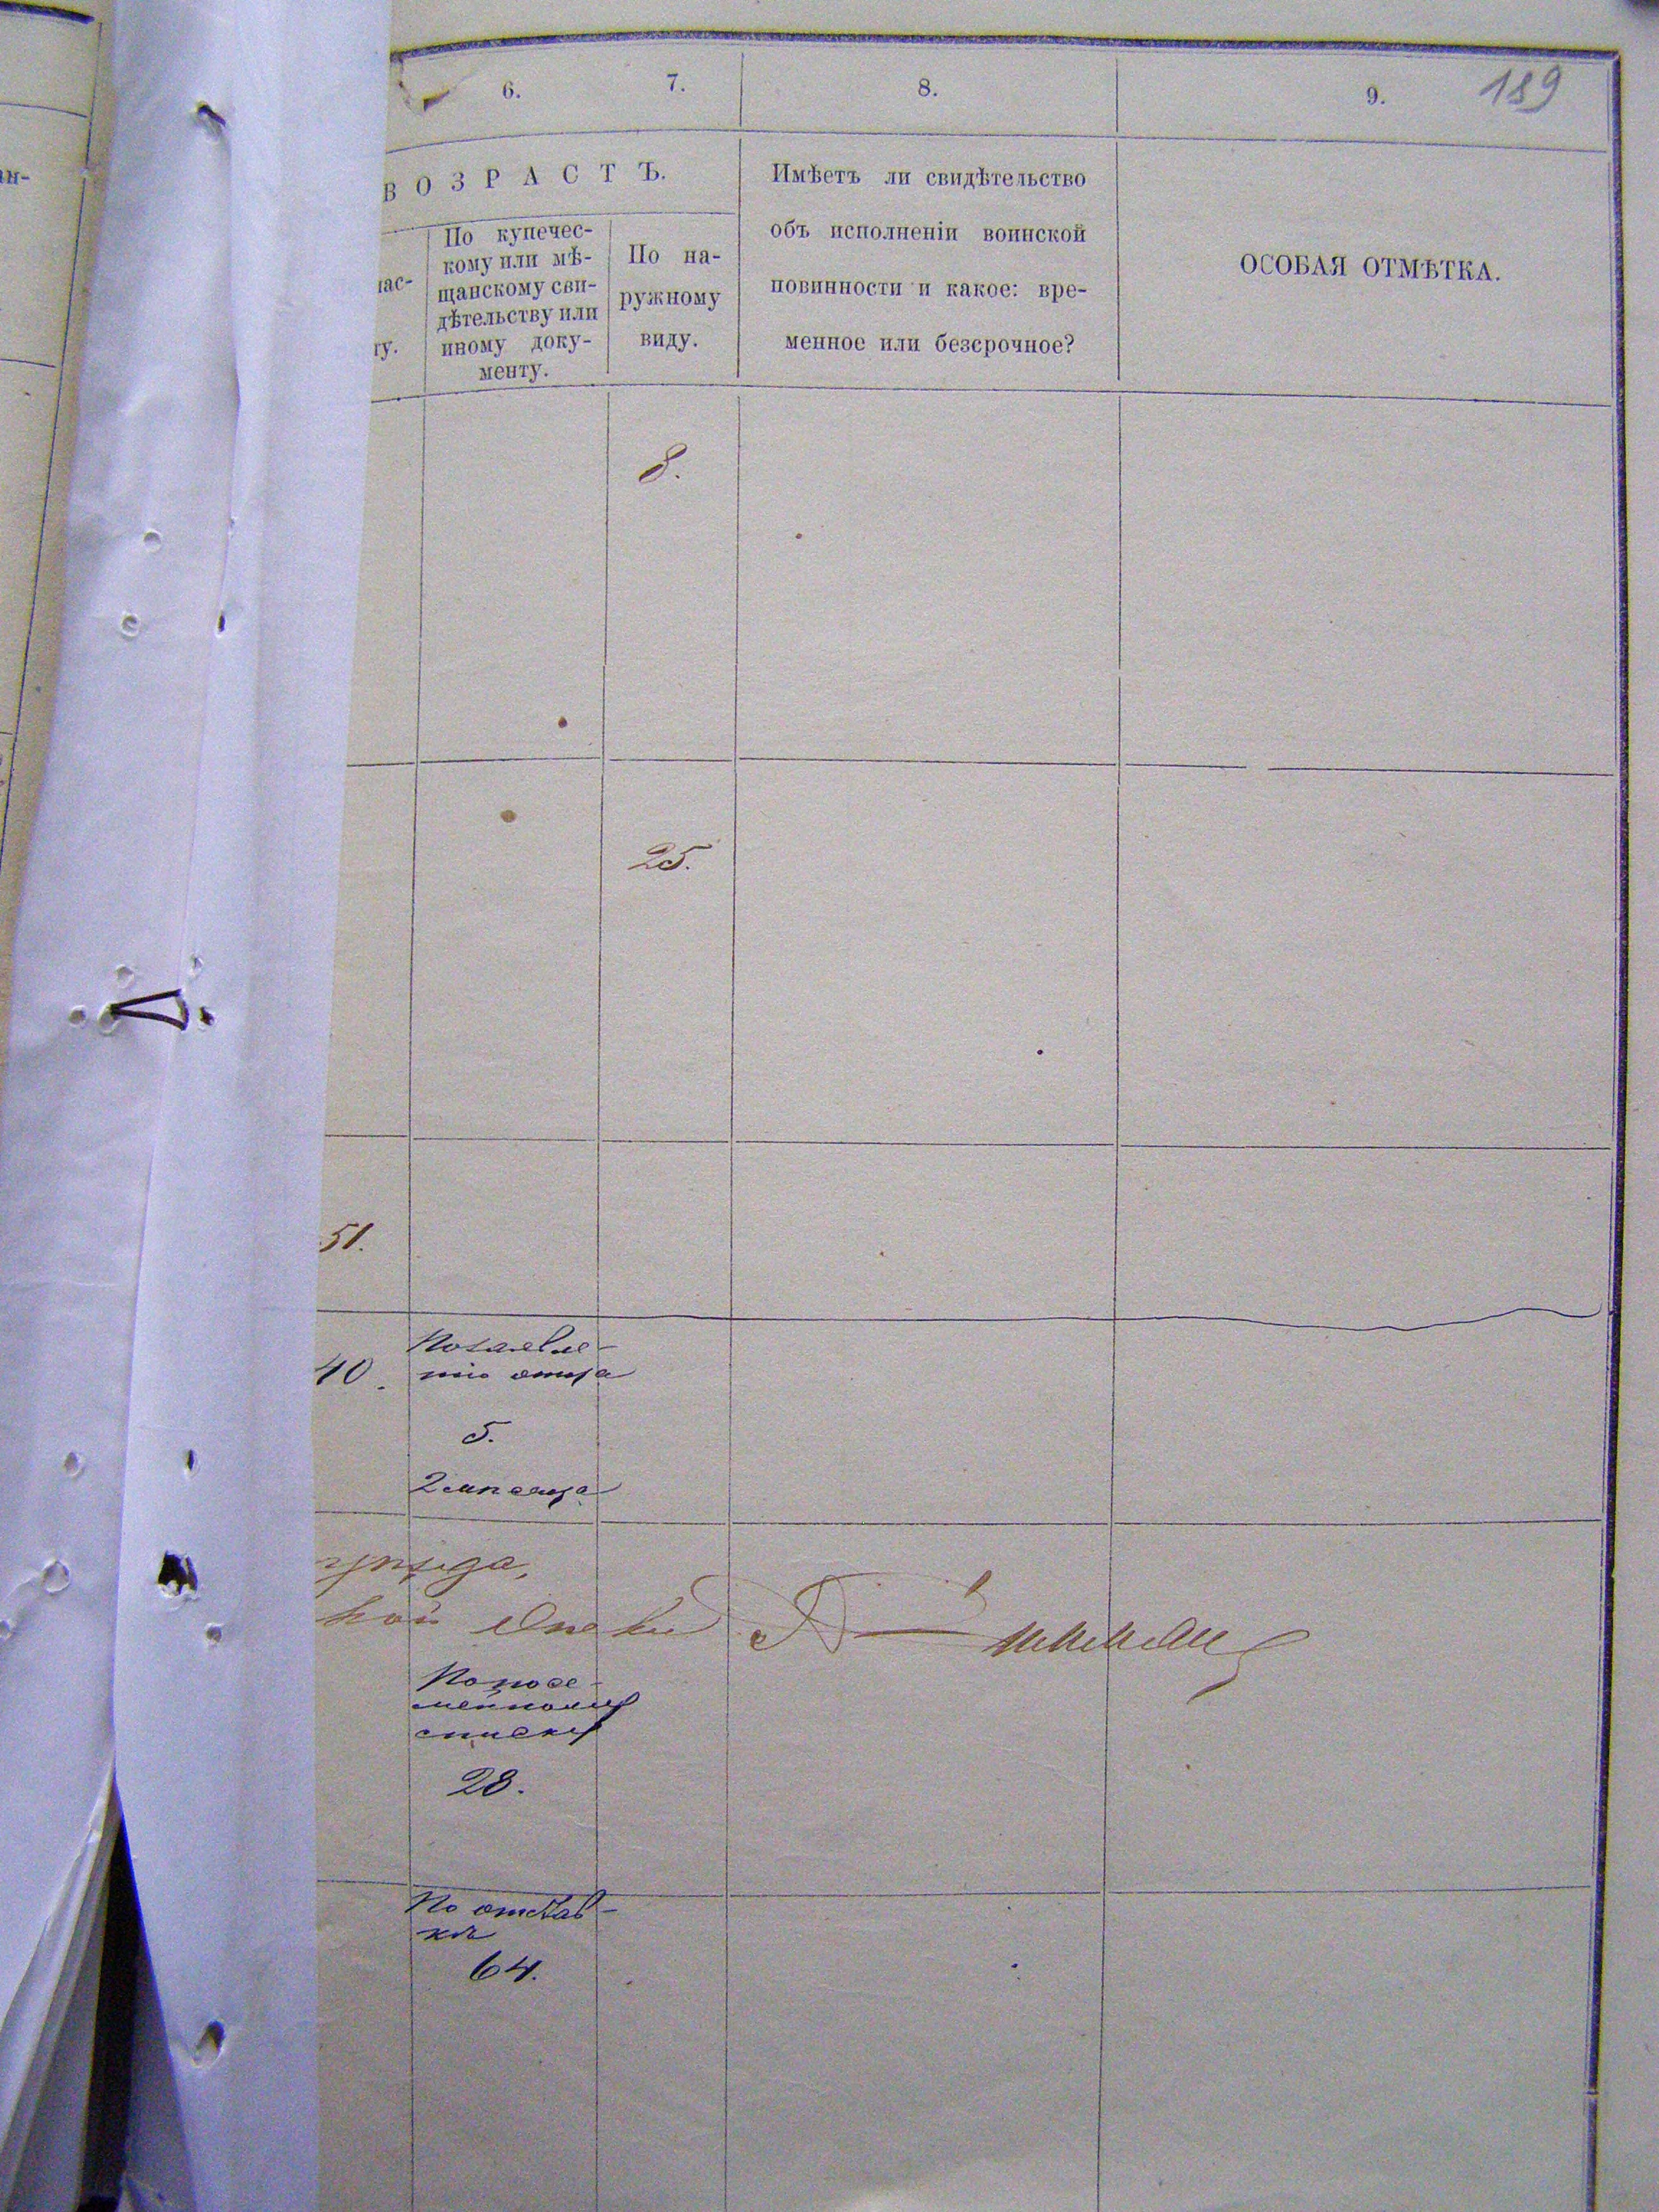 189
6.
7.
8.
9.
ан-
ВОЗРАСТЪ.
Имѣетъ ли свидѣтельство
объ исполненіи воинской
повинности и какое: вре-
менное или безсрочное?
ОСОБАЯ ОТМѢТКА.
По купечес-
кому или мѣ-
щанскому сви-
дѣтельству или
иному доку-
менту.
По на-
ружному
виду.
пас-
ту.
8.
25.
51.
40.
По заявле-
нію отца
5.
2 мѣсяца
уѣзда,
По посе-
мейному
списку
28.
По отстав-
кѣ
64.